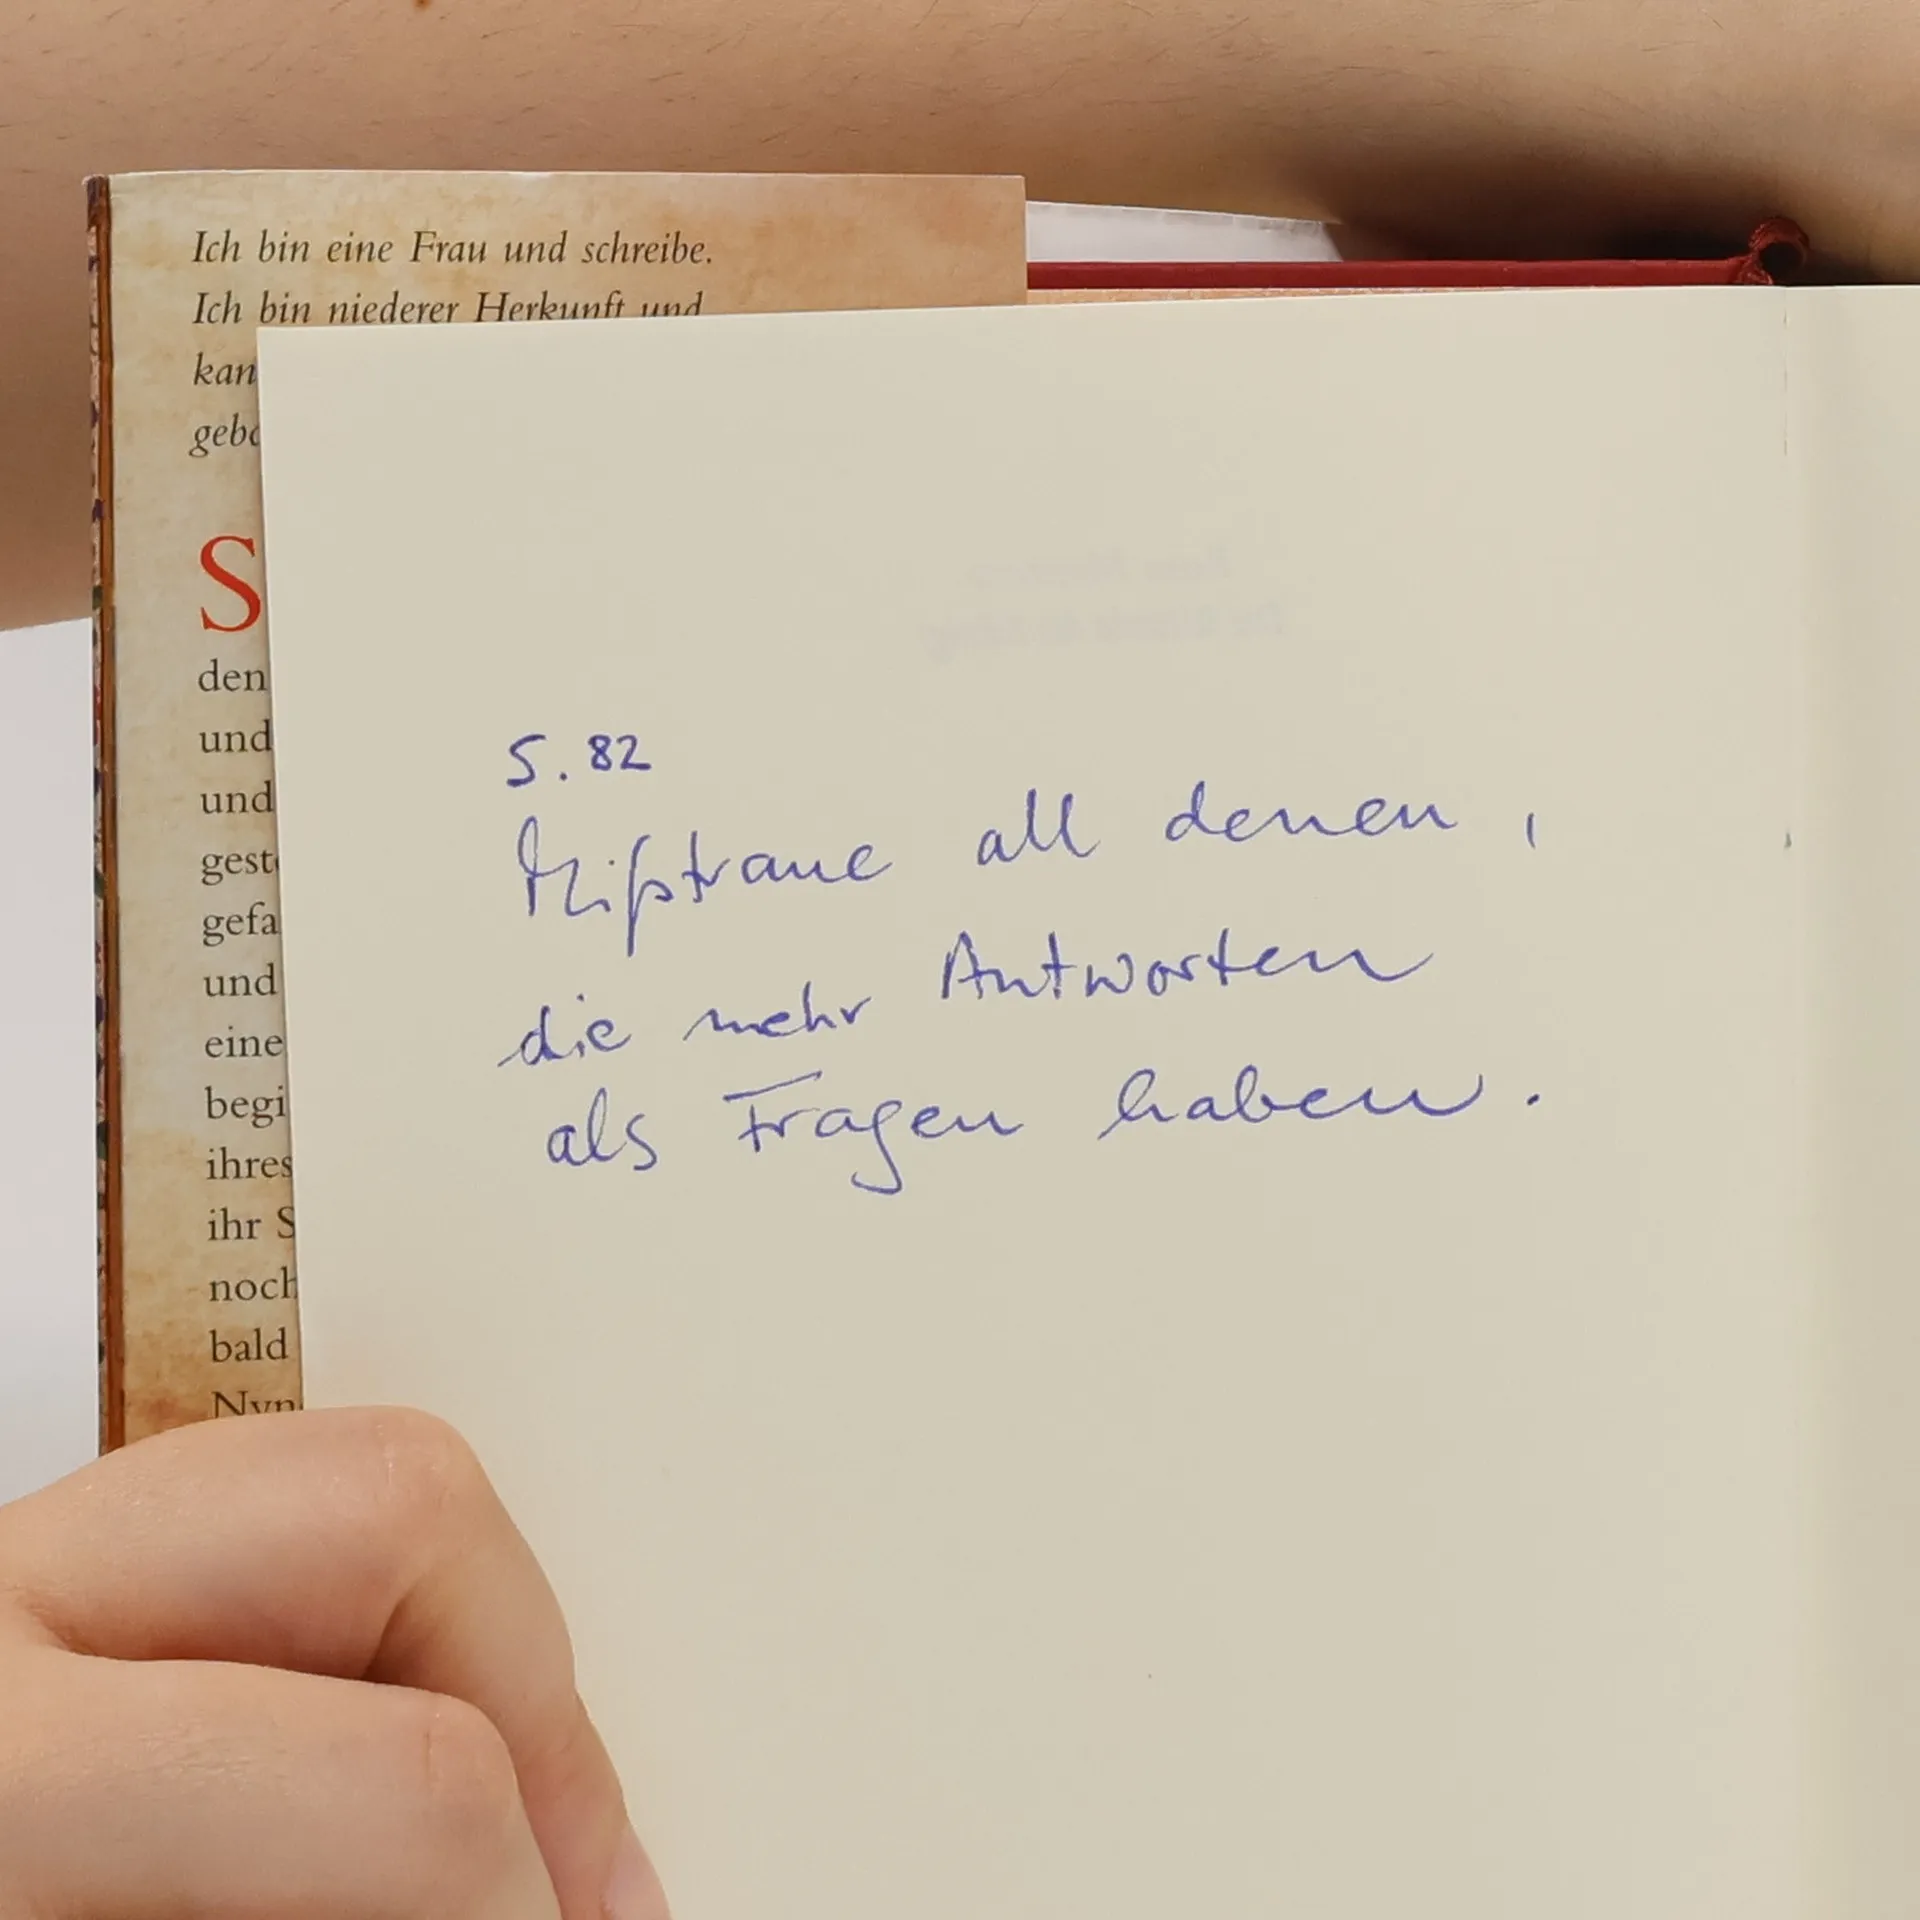 Ich bin eine Frau und schreibe.
Ich bin niederer Herkunft und
kan
gebo
S
den
und
und
geste
gefa
und
eine
begi
ihres
ihr S
noch
bald
Nyn
S. 82
Mißtraue all denen,
die mehr Antworten
als Fragen haben.